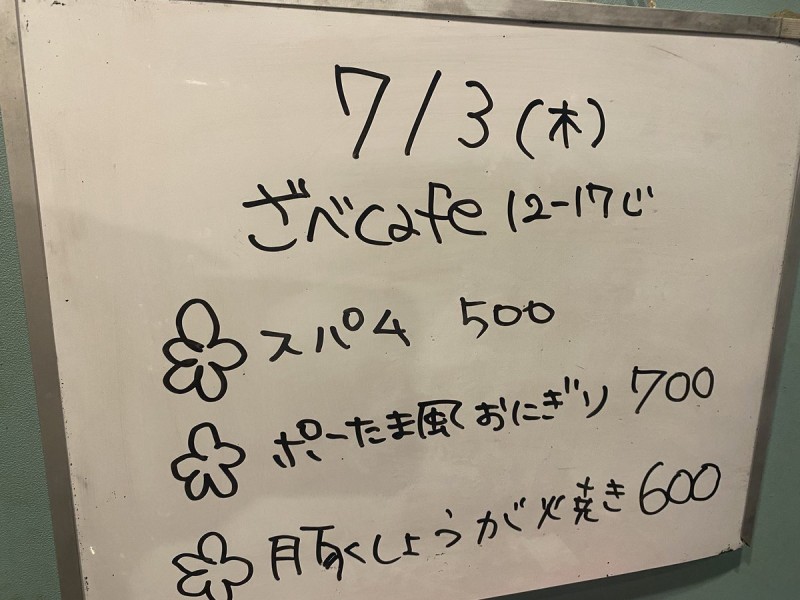 7/3(木)
ざべcafe 12-17じ
スパム 500
ポーたま風おにぎり 700
豚しょうが焼き 600